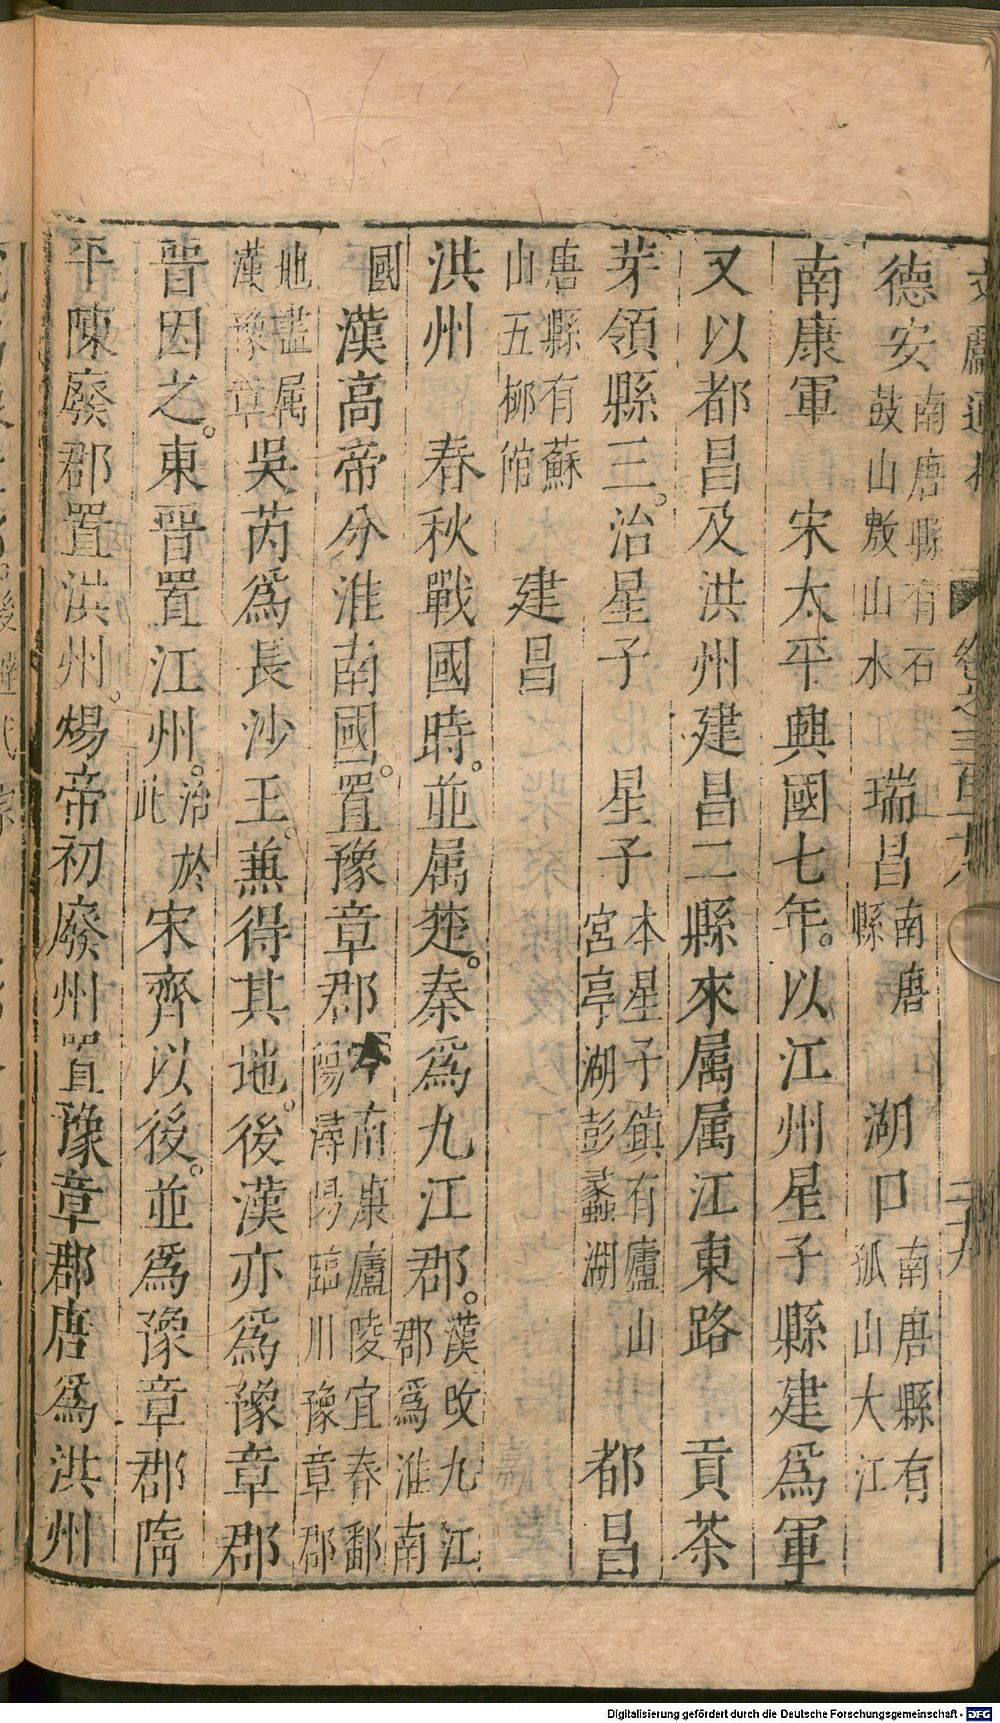 德安南唐縣有石鼓山敷山水 瑞昌南唐縣 湖口南唐縣有孤山大江
南康軍 宋太平興國七年。以江州星子縣建爲軍
又以都昌及洪州建昌二縣來属属江東路 貢茶
芽領縣三。治星子 星子本星子鎮有廬山宮亭湖彭蠡湖 都昌
唐縣有蘇山五柳館 建昌
洪州 春秋戰國時。並属楚。秦爲九江郡。漢改九江郡爲淮南
國 漢高帝分淮南國。置豫章郡 南康廬陵宜春鄱陽潯陽臨川豫章郡
地盡属漢豫章 吳芮爲長沙王。兼得其地。後漢亦爲豫章郡
晉因之。東晉置江州。治於此 宋齊以後。並爲豫章郡隋
平陳廢郡置洪州。煬帝初廢州置豫章郡唐爲洪州
Digitalisierung gefördert durch die Deutsche Forschungsgemeinschaft - DFG